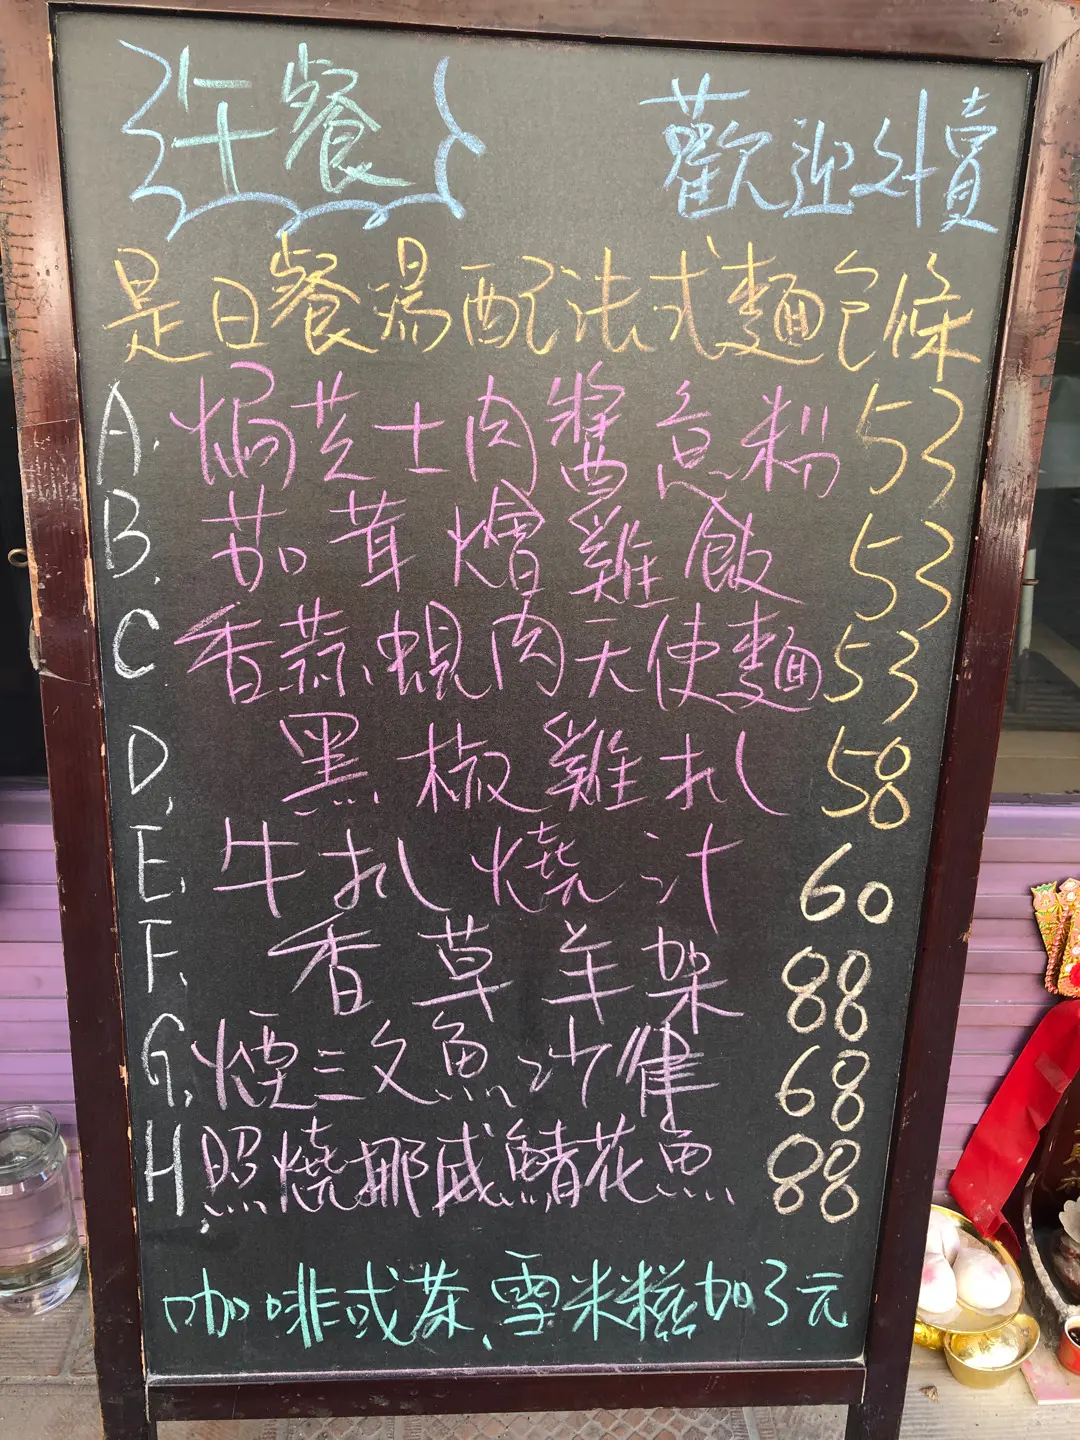 午餐 歡迎外賣
是日餐湯配法式麵包條
A. 焗芝士肉醬意粉 53
B. 茄茸燴雞飯 53
C 香蒜蜆肉天使麵 53
D. 黑椒雞扒 58
E. 牛扒燒汁 60
F. 香草羊架 88
G. 煙三文魚沙律 68
H. 照燒挪威鯖花魚 88
咖啡或茶、雪米糍加3元